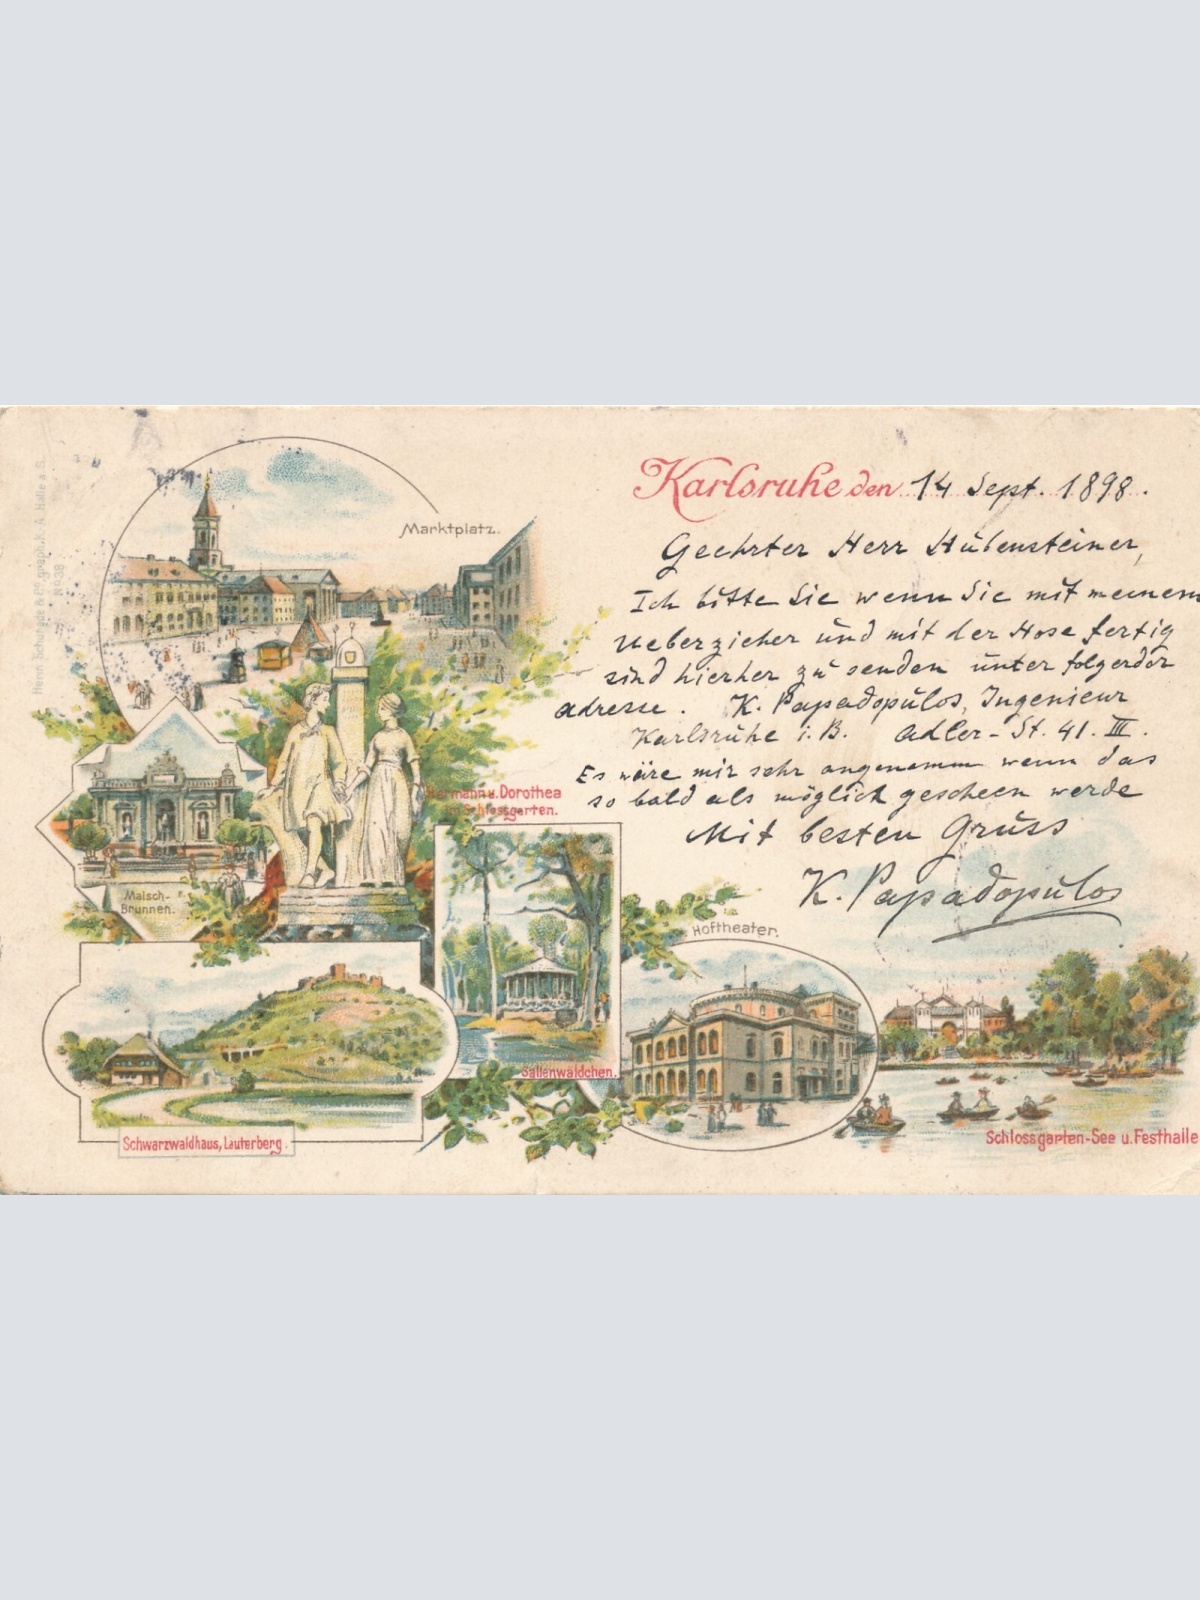 Karlsruhe den 14 Sept. 1898.
Geehrter Herr Hübensteiner,
Ich bitte Sie wenn Sie mit meinem
Ueberzieher und mit der Hose fertig
sind hierher zu senden unter folgender
adresse. K. Papadopúlos, Ingenieur
Karlsruhe i. B. Adler-St. 41. III.
Es wäre mir sehr angenemm wenn das
so bald als möglich gescheen werde
Mit besten Gruss
K. Papadopúlos
Marktplatz.
Hermann u. Dorothea
im Schlossgarten.
Malsch-
Brunnen.
Hoftheater.
Sallenwäldchen.
Schwarzwaldhaus, Lauterberg.
Schlossgarten-See u. Festhalle